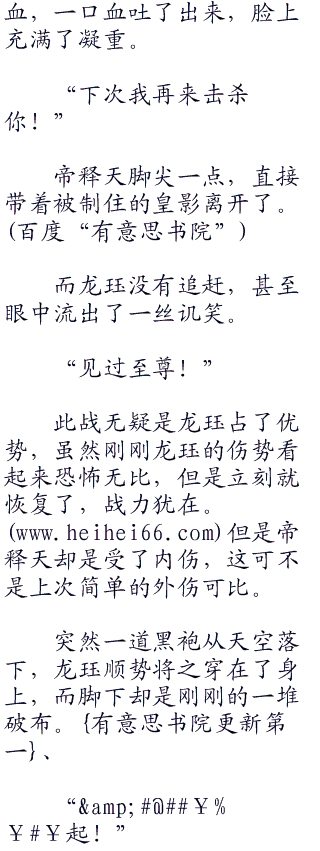 血，一口血吐了出来，脸上
充满了凝重。
“下次我再来击杀
你！”
帝释天脚尖一点，直接
带着被制住的皇影离开了。
(百度“有意思书院”)
而龙珏没有追赶，甚至
眼中流出了一丝讥笑。
“见过至尊！”
此战无疑是龙珏占了优
势，虽然刚刚龙珏的伤势看
起来恐怖无比，但是立刻就
恢复了，战力犹在。
(www.heihei66.com)但是帝
释天却是受了内伤，这可不
是上次简单的外伤可比。
突然一道黑袍从天空落
下，龙珏顺势将之穿在了身
上，而脚下却是刚刚的一堆
破布。{有意思书院更新第
一}、
“&amp;#@##￥%
￥#￥起！”